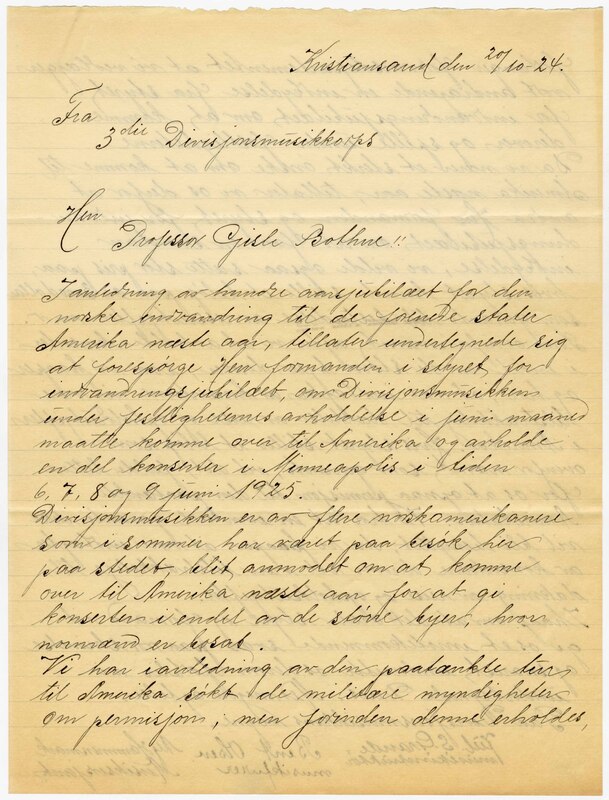 Kristiansand den 20/10-24.
Fra
3die Divisjonsmusikkorps
Herr
Professor Gisle Bothne!!
Ianledning av hundre aarsjubilæet for den
norske indvandring til de forenede stater
Amerika næste aar, tillater undertegnede sig
at forespørge Herr formanden i styret for
indvandringsjubilæet, om Divisjonsmusikken
under festlighetenes avholdelse i juni maaned
maatte komme over til Amerika og avholde
en del konserter i Minneapolis i tiden
6, 7, 8 og 9 juni 1925.
Divisjonsmusikken er av flere norskamerikanere
som i sommer har været paa besøk her
paa stedet, blit anmodet om at komme
over til Amerika næste aar for at gi
konserter i endel av de større byer, hvor
normænd er bosat.
Vi har ianledning av den paatænkte tur
til Amerika søkt de militære myndigheter
om permisjon, men forinden denne erholdes,